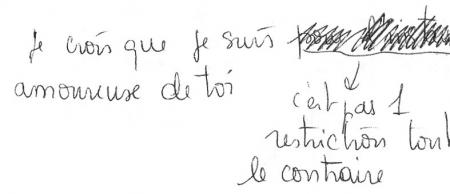 Je crois que je suis
amoureuse de toi
c'est pas 1
restriction tout
le contraire